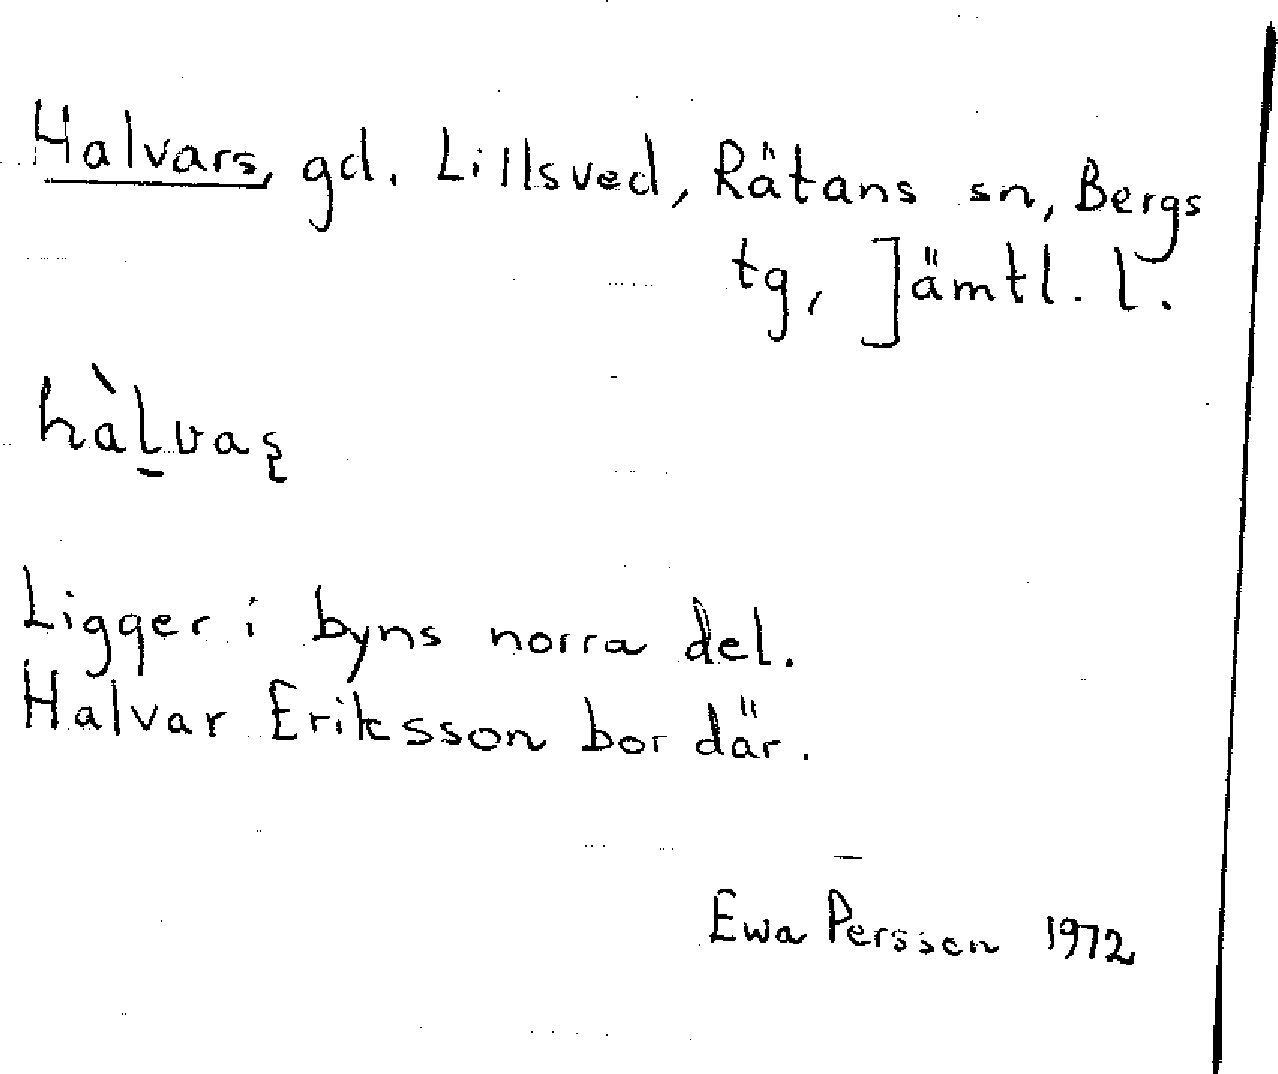 Halvars, gd. Lillsved, Rätans sn, Bergs
tg, Jämtl. l.
hàl̠vaʂ
Ligger i byns norra del.
Halvar Eriksson bor där.
Ewa Persson 1972